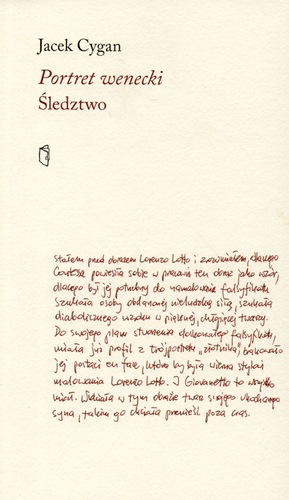 Jacek Cygan
Portret wenecki
Śledztwo
stałem przed obrazem Lorenzo Lotto i zrozumiałem, dlaczego
Contessa powiesiła sobie w pracowni ten obraz jako wzór,
dlaczego był jej potrzebny do namalowania falsyfikatu
szukała osoby obdarzonej nieludzką siłą, szukała
diabolicznego wzroku w pięknej, chłopięcej twarzy.
Do swojego planu stworzenia doskonałego falsyfikatu,
miała już profil z trójportretu „złotnika", brakowało
jej postaci en face, która by była wierna stylowi
malowania Lorenzo Lotto. I Giovanetto to wszystko
miał. Widziała w tym obrazie twarz swojego ukochanego
syna, takim go chciała przenieść poza czas.